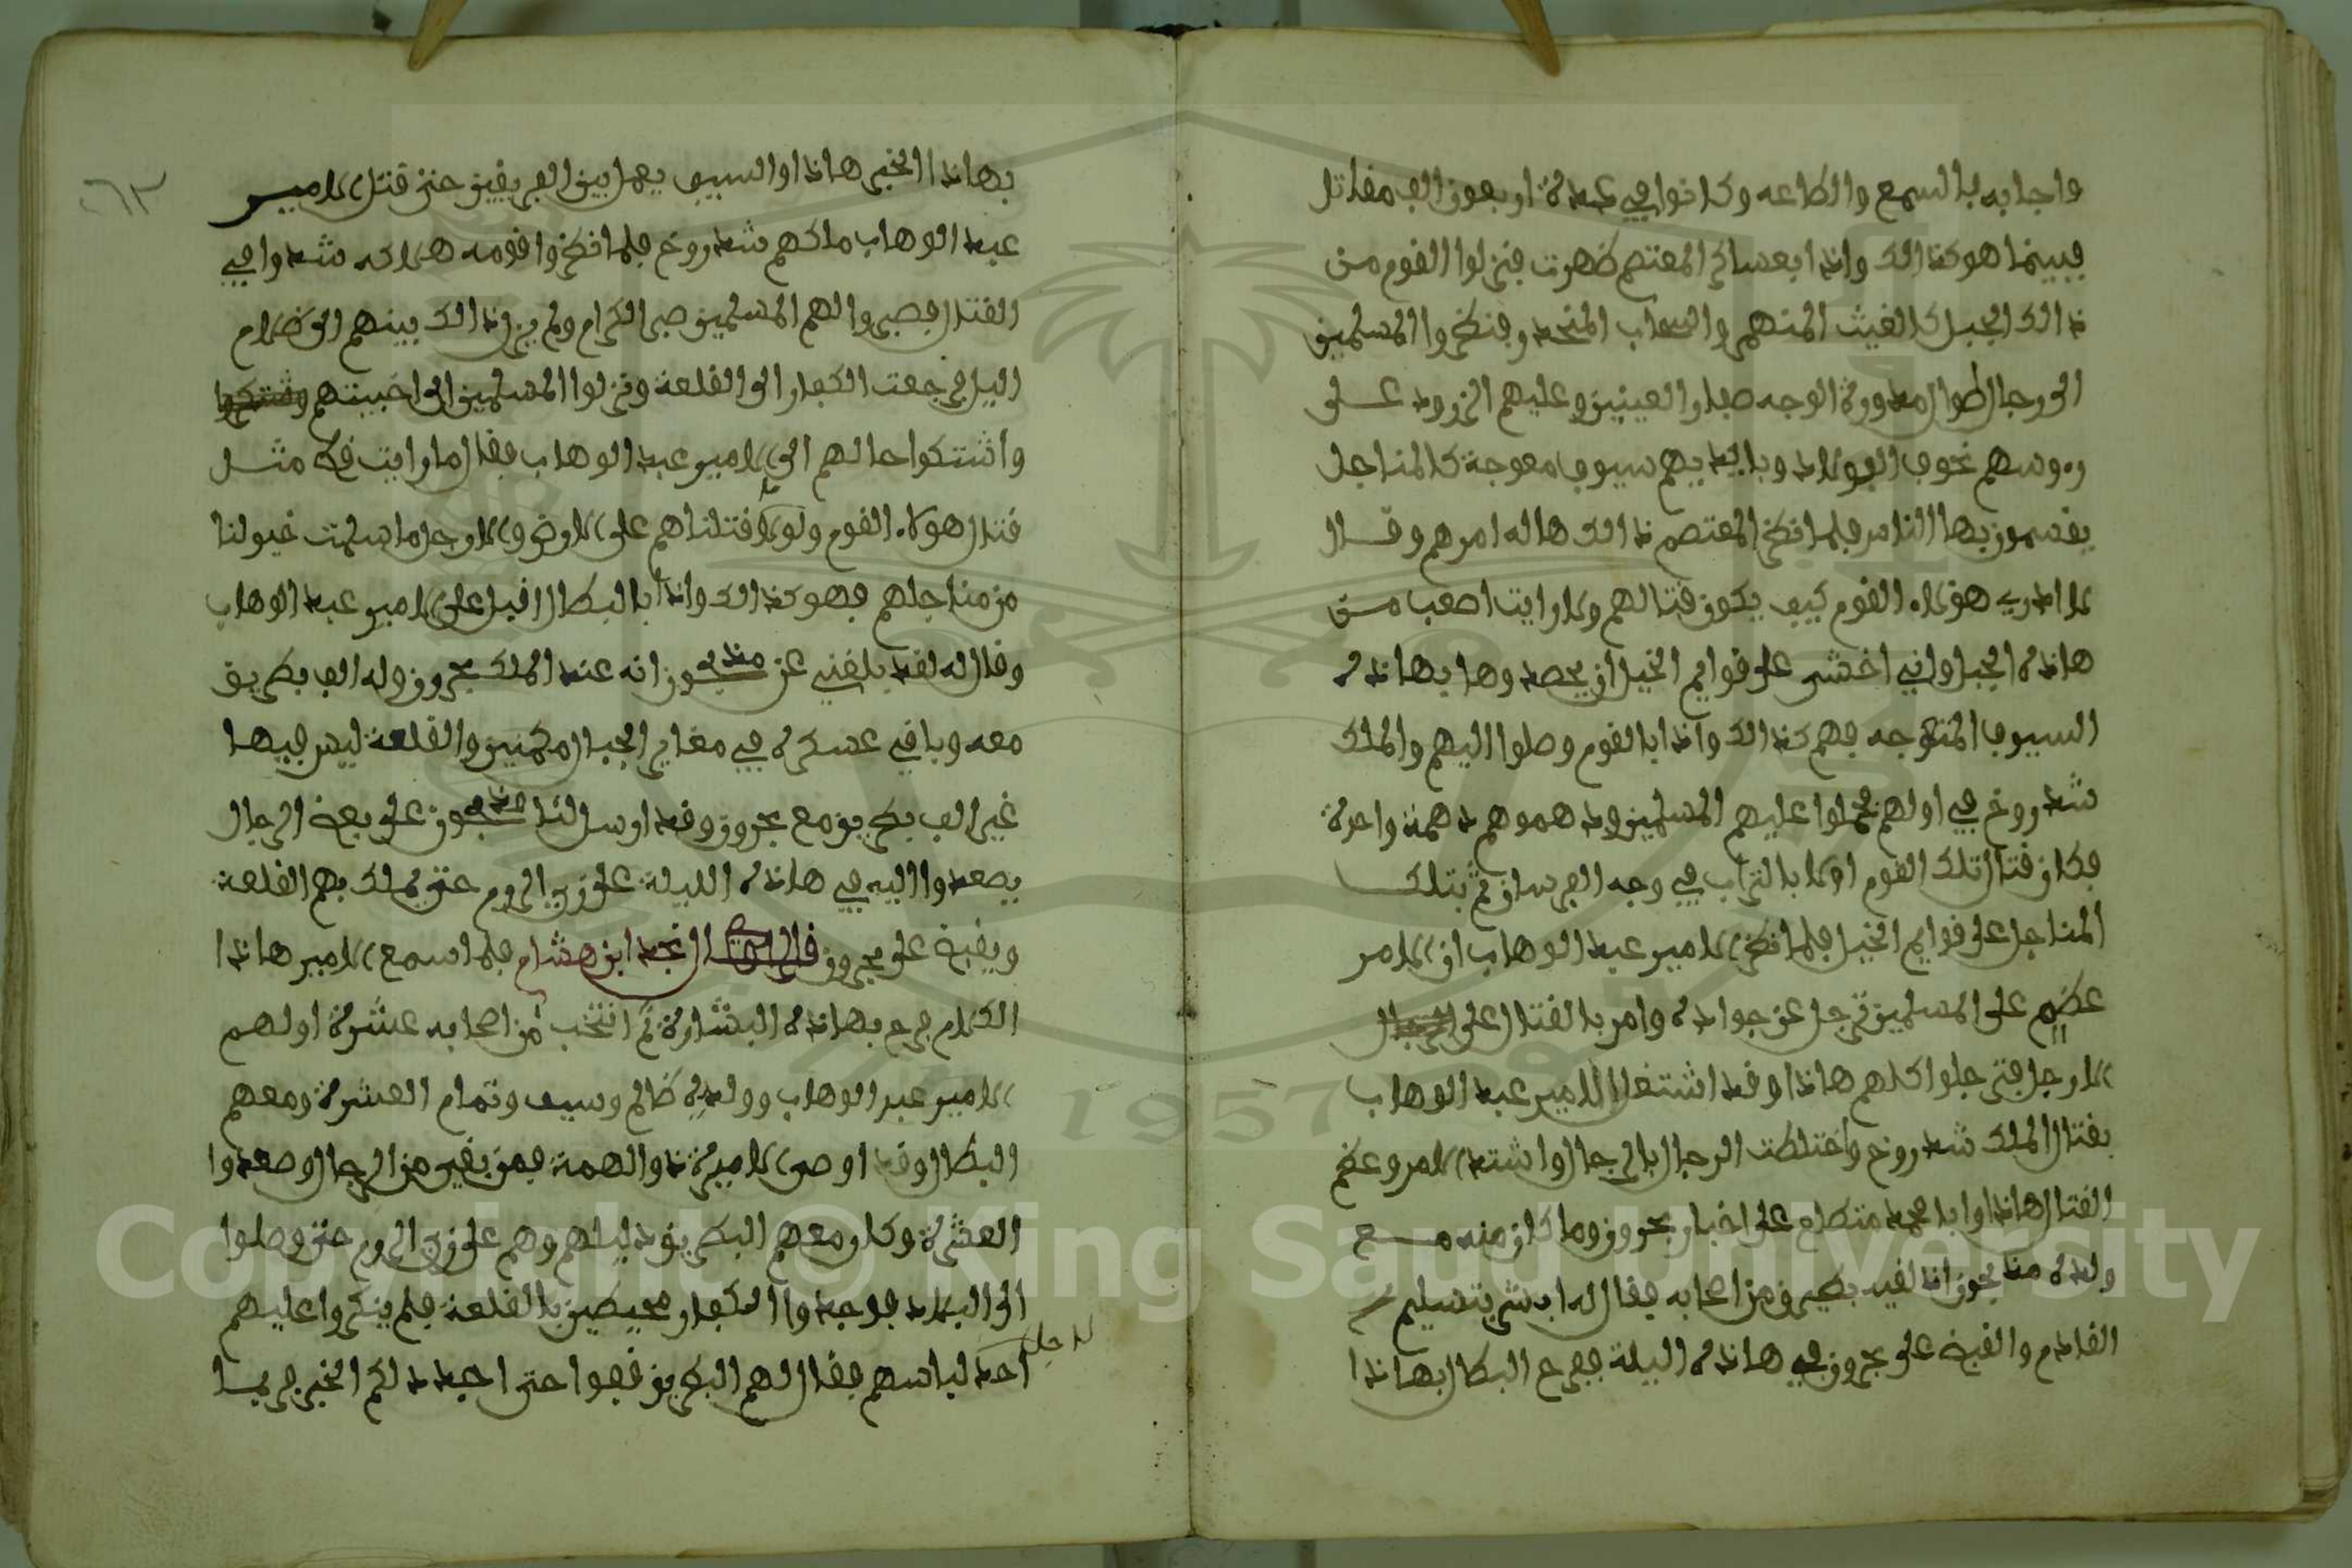 واجابه بالسمع والطاعه وكانوا في عدة اربعون الف مقاتل
فبينما هو كذالك واذا بعساكر المعتصم ظهرت فنزلوا القوم من
ذالك الجبل كالغيث المنهمر والسحاب المنحدر فنظروا المسلمين
الى رجال طوال مدورة الوجه صغار العينين وعليهم الزرود على
روسهم نحوف الفولاد وبايديهم سيوف معوجة كالمناجل
يقسمون بها الناس فلما نظر المعتصم ذالك هاله امرهم وقال
لا ادري هولاء القوم كيف يكون قتالهم ولا رايت اصعب من
هاذه الجبل واني اخشى على قوايم الخيل ان يحصدوها بهاذه
السيوف المتعوجه فهم كذالك واذا بالقوم وصلوا اليهم والملك
شدروخ في اولهم فحملوا عليهم المسلمين ودهموهم دهمة واحدة
فكان قتال تلك القوم اولا بالتراب في وجه الفرسان ثم بتلك
المناجل على قوايم الخيل فلما نظر الامير عبد الوهاب ان الامر
عظم على المسلمين ترجل عن جواده وامر بالقتال على
الارجل فترجلوا كلهم هاذا وقد اشتغل الامير عبد الوهاب
بقتال الملك شدروخ واختلطت الرجال بالرجال واشتد الامر وعظم
القتال هاذا وابا محمد متطلع على اخبار بحرون وما كان منه مع
ولده منديحون اذ لقيه بطريق من اصحابه فقال له ابشر بتسليم
القادم والقبض على بحرون في هاذه اليلة ففرح البطال بهاذا
بهاذا الخبر هاذا والسيف يعمل بين الفريقين حتى قتل الامير
عبد الوهاب ملكهم شدروخ فلما نظروا قومه هلاكه شدوا في
القتال فصبروا لهم المسلمين صبر الكرام ولم يزل ذالك بينهم الى ظلام
اليل فرجعت الكفار الى القلعة ونزلوا المسلمين الى اخبيتهم
واشتكوا حالهم الى الامير عبد الوهاب فقال ما رايت قط مثل
قتال هولاء القوم ولولا قتلناهم على الارض والارجل ما سلمت خيولنا
من مناجلهم فهو كذالك واذا بالبطال اقبل على الامير عبد الوهاب
وقال له لقد بلغني عن منديحون انه عند الملك بحرون وله الف بطريق
معه وباقي عسكره في مغاير الجبال مكمنين والقلعة ليس فيها
غير الف بطريق مع بحرون وقد ارسل لنا منديحون على بعض الرجال
يصعدوا اليه في هاذه الليلة على زي الروم حتى يملك بهم القلعة
ويقبض على بحرون قال الراوي نجد ابن هشام فلما سمع الامير هاذا
الكلام فرح بهاذه البشارة ثم انتخب من اصحابه عشرة اولهم
الامير عبد الوهاب وولده ظالم وسيف وتمام العشرة ومعهم
البطال وقد اوصى الاميرة ذو الهمة فمن بقي من الرجال وصعدوا
العشرة وكان معهم البطريق دليلهم وهم على زي الروم حتى وصلوا
الى البلاد فوجدوا الكفار محيطين بالقلعة فلم ينكروا عليهم
احد لباسهم فقال لهم البطريق قفوا حتى اجيد لكم الخبر فربما
لاجل